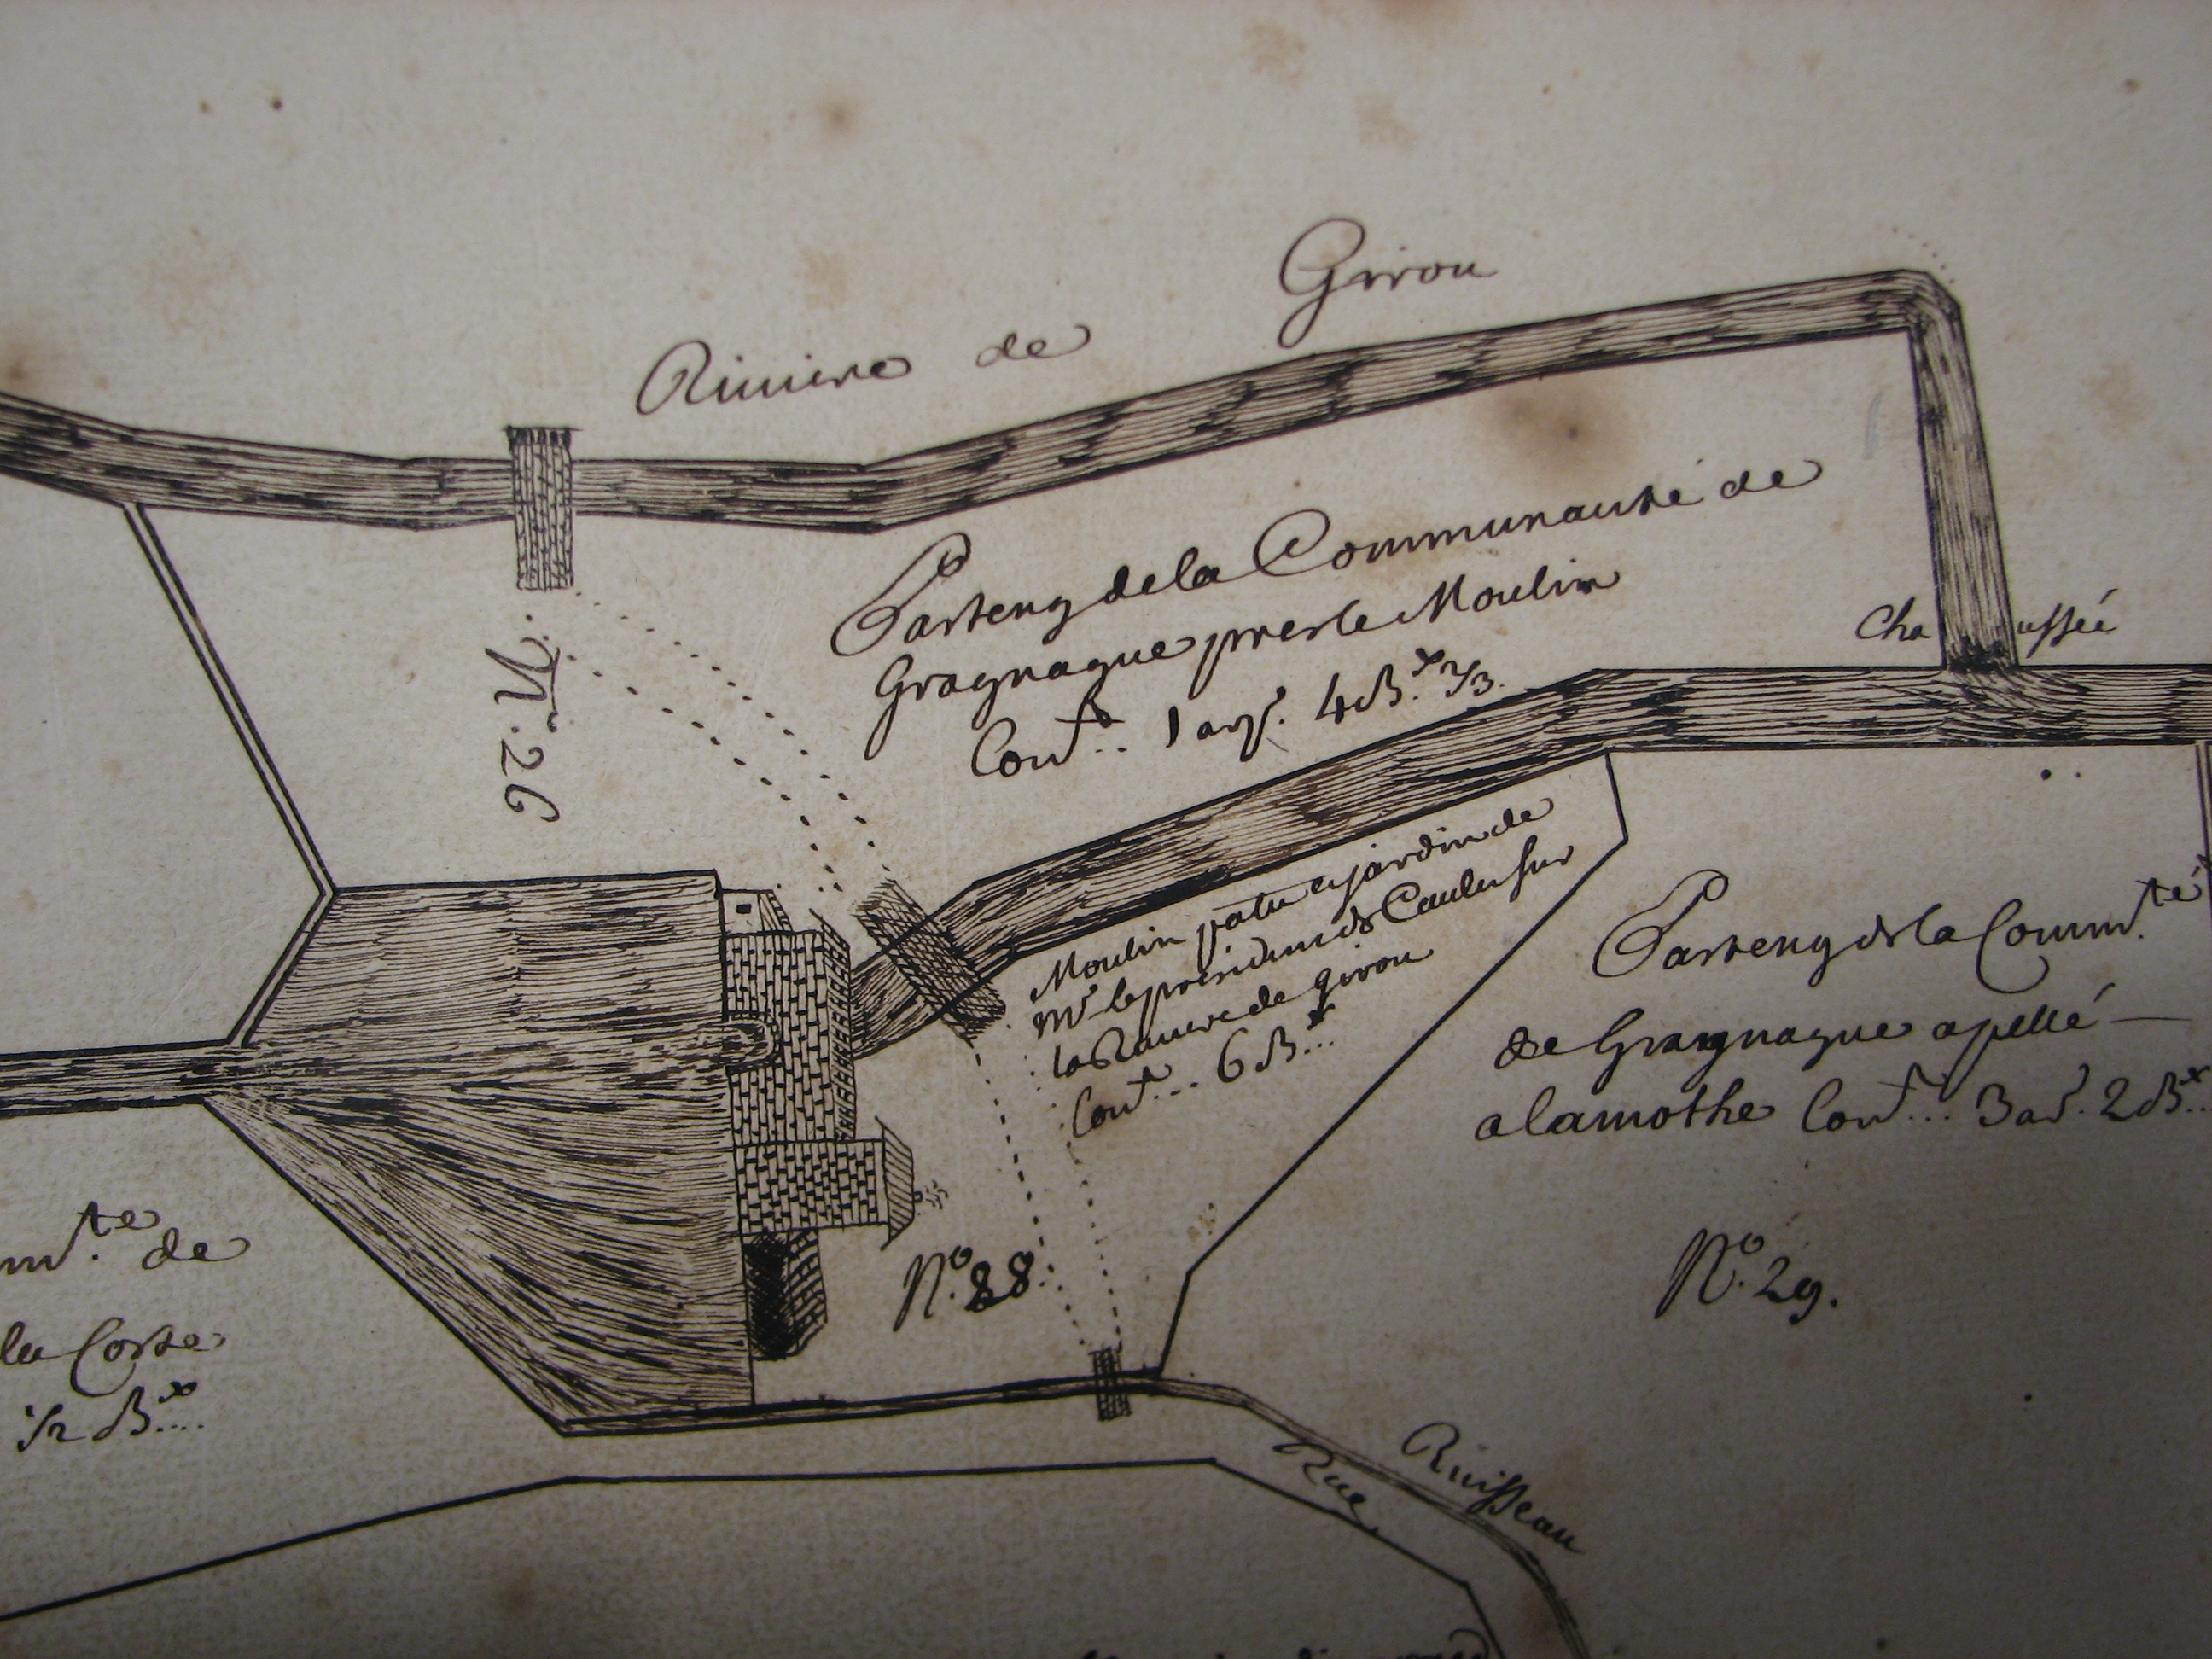 Riuiere de Girou
Pasteng de la Communauté de
Gragnague pres le Moulin
Cont.. 1 arp. 4 B.x 2/3.
Chaussée
N.º 26
Moulin patu et jardin de
Mr le president de Caulet sur
la Riuiere de girou
Cont... 6 B...x
N.º 28.
Pasteng de la Comm.té
de Gragnague apellé
a lamothe Cont... 3 ar. 2 B.x..
N.º 29.
m.te de
la Coste
1/2 B.x...
Ruisseau
Rue